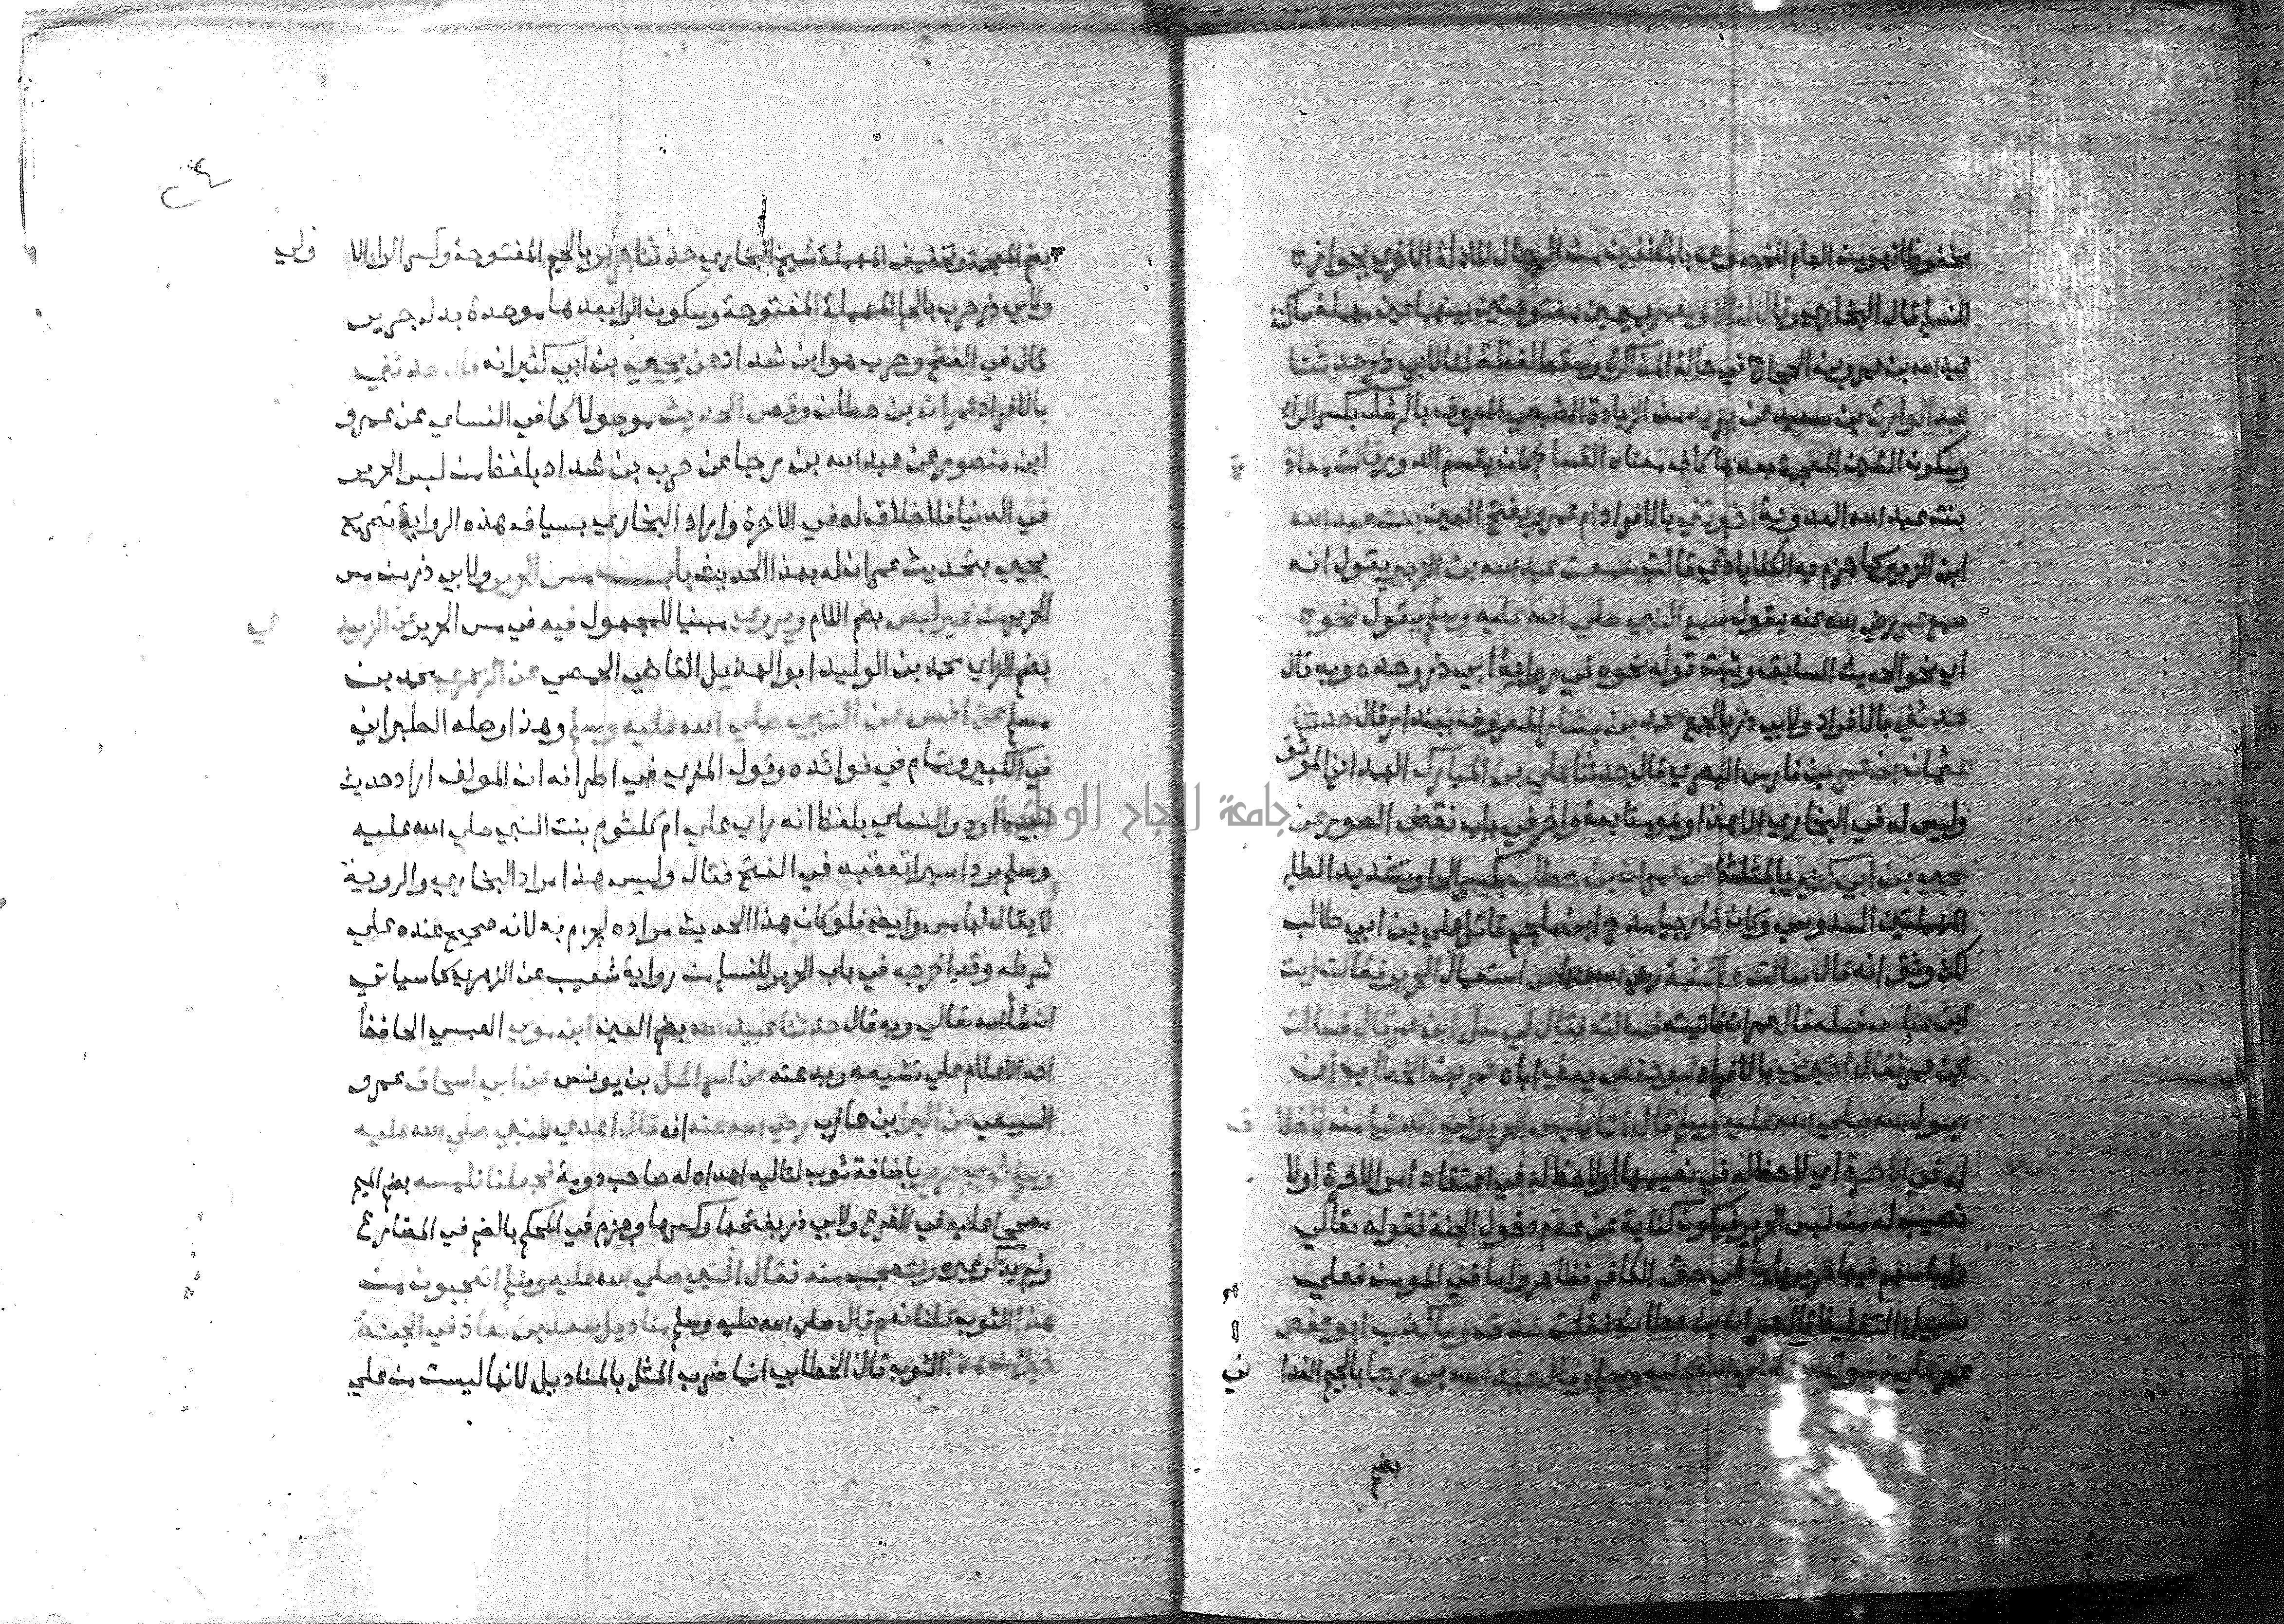 محفوظا فهو من العام المخصوص بالمكلفين من الرجال للادلة الاخري بجوازه
للنسا قال البخاري وقال لنا ابو معمر بميمين مفتوحتين بينهما عين مهملة ساكنة
عبد الله بن عمرو بن الحجاج في حالة المذاكرة وسقط لفظة لنا لابي ذر حدثنا
عبد الوارث بن سعيد عن يزيد من الزيادة الضبعي المعروف بالرشك بكسر الراء
وسكون الشين المعجمة بعدها كاف معناه القسام كان يقسم الدور قالت معاذة
بنت عبد الله العدوية اخبرتني بالافراد ام عمرو بفتح العين بنت عبد الله
ابن الزبير كما جزم به الكلاباذي قالت سمعت عبد الله بن الزبير يقول انه
سمع عمر رضي الله عنه يقول سمع النبي صلي الله عليه وسلم يقول نحوه
اي نحو الحديث السابق وثبت قوله نحوه في رواية ابي ذر وحده وبه قال
حدثني بالافراد ولابي ذر بالجمع محمد بن بشار المعروف ببندار قال حدثنا
عثمان بن عمر بن فارس البصري قال حدثنا علي بن المبارك الهنائي الموثق
وليس له في البخاري الا هذا وهو متابعة واخر في باب نقض الصور عن
يحيي بن ابي كثير بالمثلثة عن عمران بن حطان بكسر الحا وتشديد الطا
المهملتين السدوسي وكان خارجيا مدح ابن ملجم قاتل علي بن ابي طالب
لكن وثق انه قال سالت عائشة رضي الله عنها عن استعمال الحرير فقالت ايت
ابن عباس فسله قال عمران فاتيته فسالته فقال لي سل ابن عمر قال فسالت
ابن عمر فقال اخبرني بالافراد ابو حفص يعني اباه عمر بن الخطاب ان
رسول الله صلي الله عليه وسلم قال انما يلبس الحرير في الدنيا من لا خلاق
له في الاخرة اي لا حظ له في نعيمها او لا حظ له في اعتقاد امر الاخرة او لا
نصيب له من لبس الحرير فيكون كناية عن عدم دخول الجنة لقوله تعالي
ولباسهم فيها حرير اما في حق الكافر فظاهر واما في المومن فعلي
سبيل التغليظ قال عمران بن حطان فقلت صدق وما كذب ابو حفص
عمر علي رسول الله صلي الله عليه وسلم وقال عبد الله بن رجا بالجيم الغداني
بضم
بضم المعجمة وتخفيف المهملة شيخ البخاري حدثنا جرير بالجيم المفتوحة وكسر الرا الاولي
ولابي ذر حرب بالحا المهملة المفتوحة وسكون الرا بعدها موحدة بدل جرير
قال في الفتح وحرب هو ابن شداد عن يحيي بن ابي كثير انه قال حدثني
بالافراد عمران بن حطان وقص الحديث موصولا كما في النساي عن عمرو
ابن منصور عن عبد الله بن رجا عن حرب بن شداد بلفظ من لبس الحرير
في الدنيا فلا خلاق له في الاخرة وايراد البخاري بسياقه هذه الرواية تصريح
يحيي بتحديث عمران له بهذا الحديث باب مس الحرير ولابي ذر من مس
الحرير من غير لبس بضم اللام ويروي مبنيا للمجهول فيه في مس الحرير عن الزبيدي
بضم الزاي محمد بن الوليد ابو الهذيل القاضي الحمصي عن الزهري محمد بن
مسلم عن انس عن النبي صلي الله عليه وسلم وهذا وصله الطبراني
في الكبير وتمام في فوائده وقول المزي في اطرافه ان المولف اراد حديث
ابي داود والنساي بلفظ انه راي علي ام كلثوم بنت النبي صلي الله عليه
وسلم بردا سيرا تعقبه في الفتح فقال وليس هذا مراد البخاري والروية
لا يقال لها مس وايضا فلو كان هذا الحديث مراده لجزم به لانه صحيح عنده علي
شرطه وقد اخرجه في باب الحرير للنسا من رواية شعيب عن الزهري كما سياتي
ان شا الله تعالي وبه قال حدثنا عبيد الله بضم العين ابن موسي العبسي الحافظ
احد الاعلام علي تشيعه وبدعته عن اسرائيل بن يونس عن ابي اسحاق عمرو
السبيعي عن البرا بن عازب رضي الله عنه انه قال اهدي للنبي صلي الله عليه
وسلم ثوب حرير باضافة ثوب لتاليه اهداه له صاحب دومة فجعلنا نلمسه بضم الميم
مصححا عليه في الفرع ولابي ذر بفتحها وكسرها وجزم في المحكم بالضم في المضارع
ولم يذكر غيره ونتعجب منه فقال النبي صلي الله عليه وسلم اتعجبون من
هذا الثوب قلنا نعم قال صلي الله عليه وسلم مناديل سعد بن معاذ في الجنة
خير من هذا الثوب قال الخطابي انما ضرب المثل بالمناديل لانها ليست من علي
جامعة النجاح الوطنية